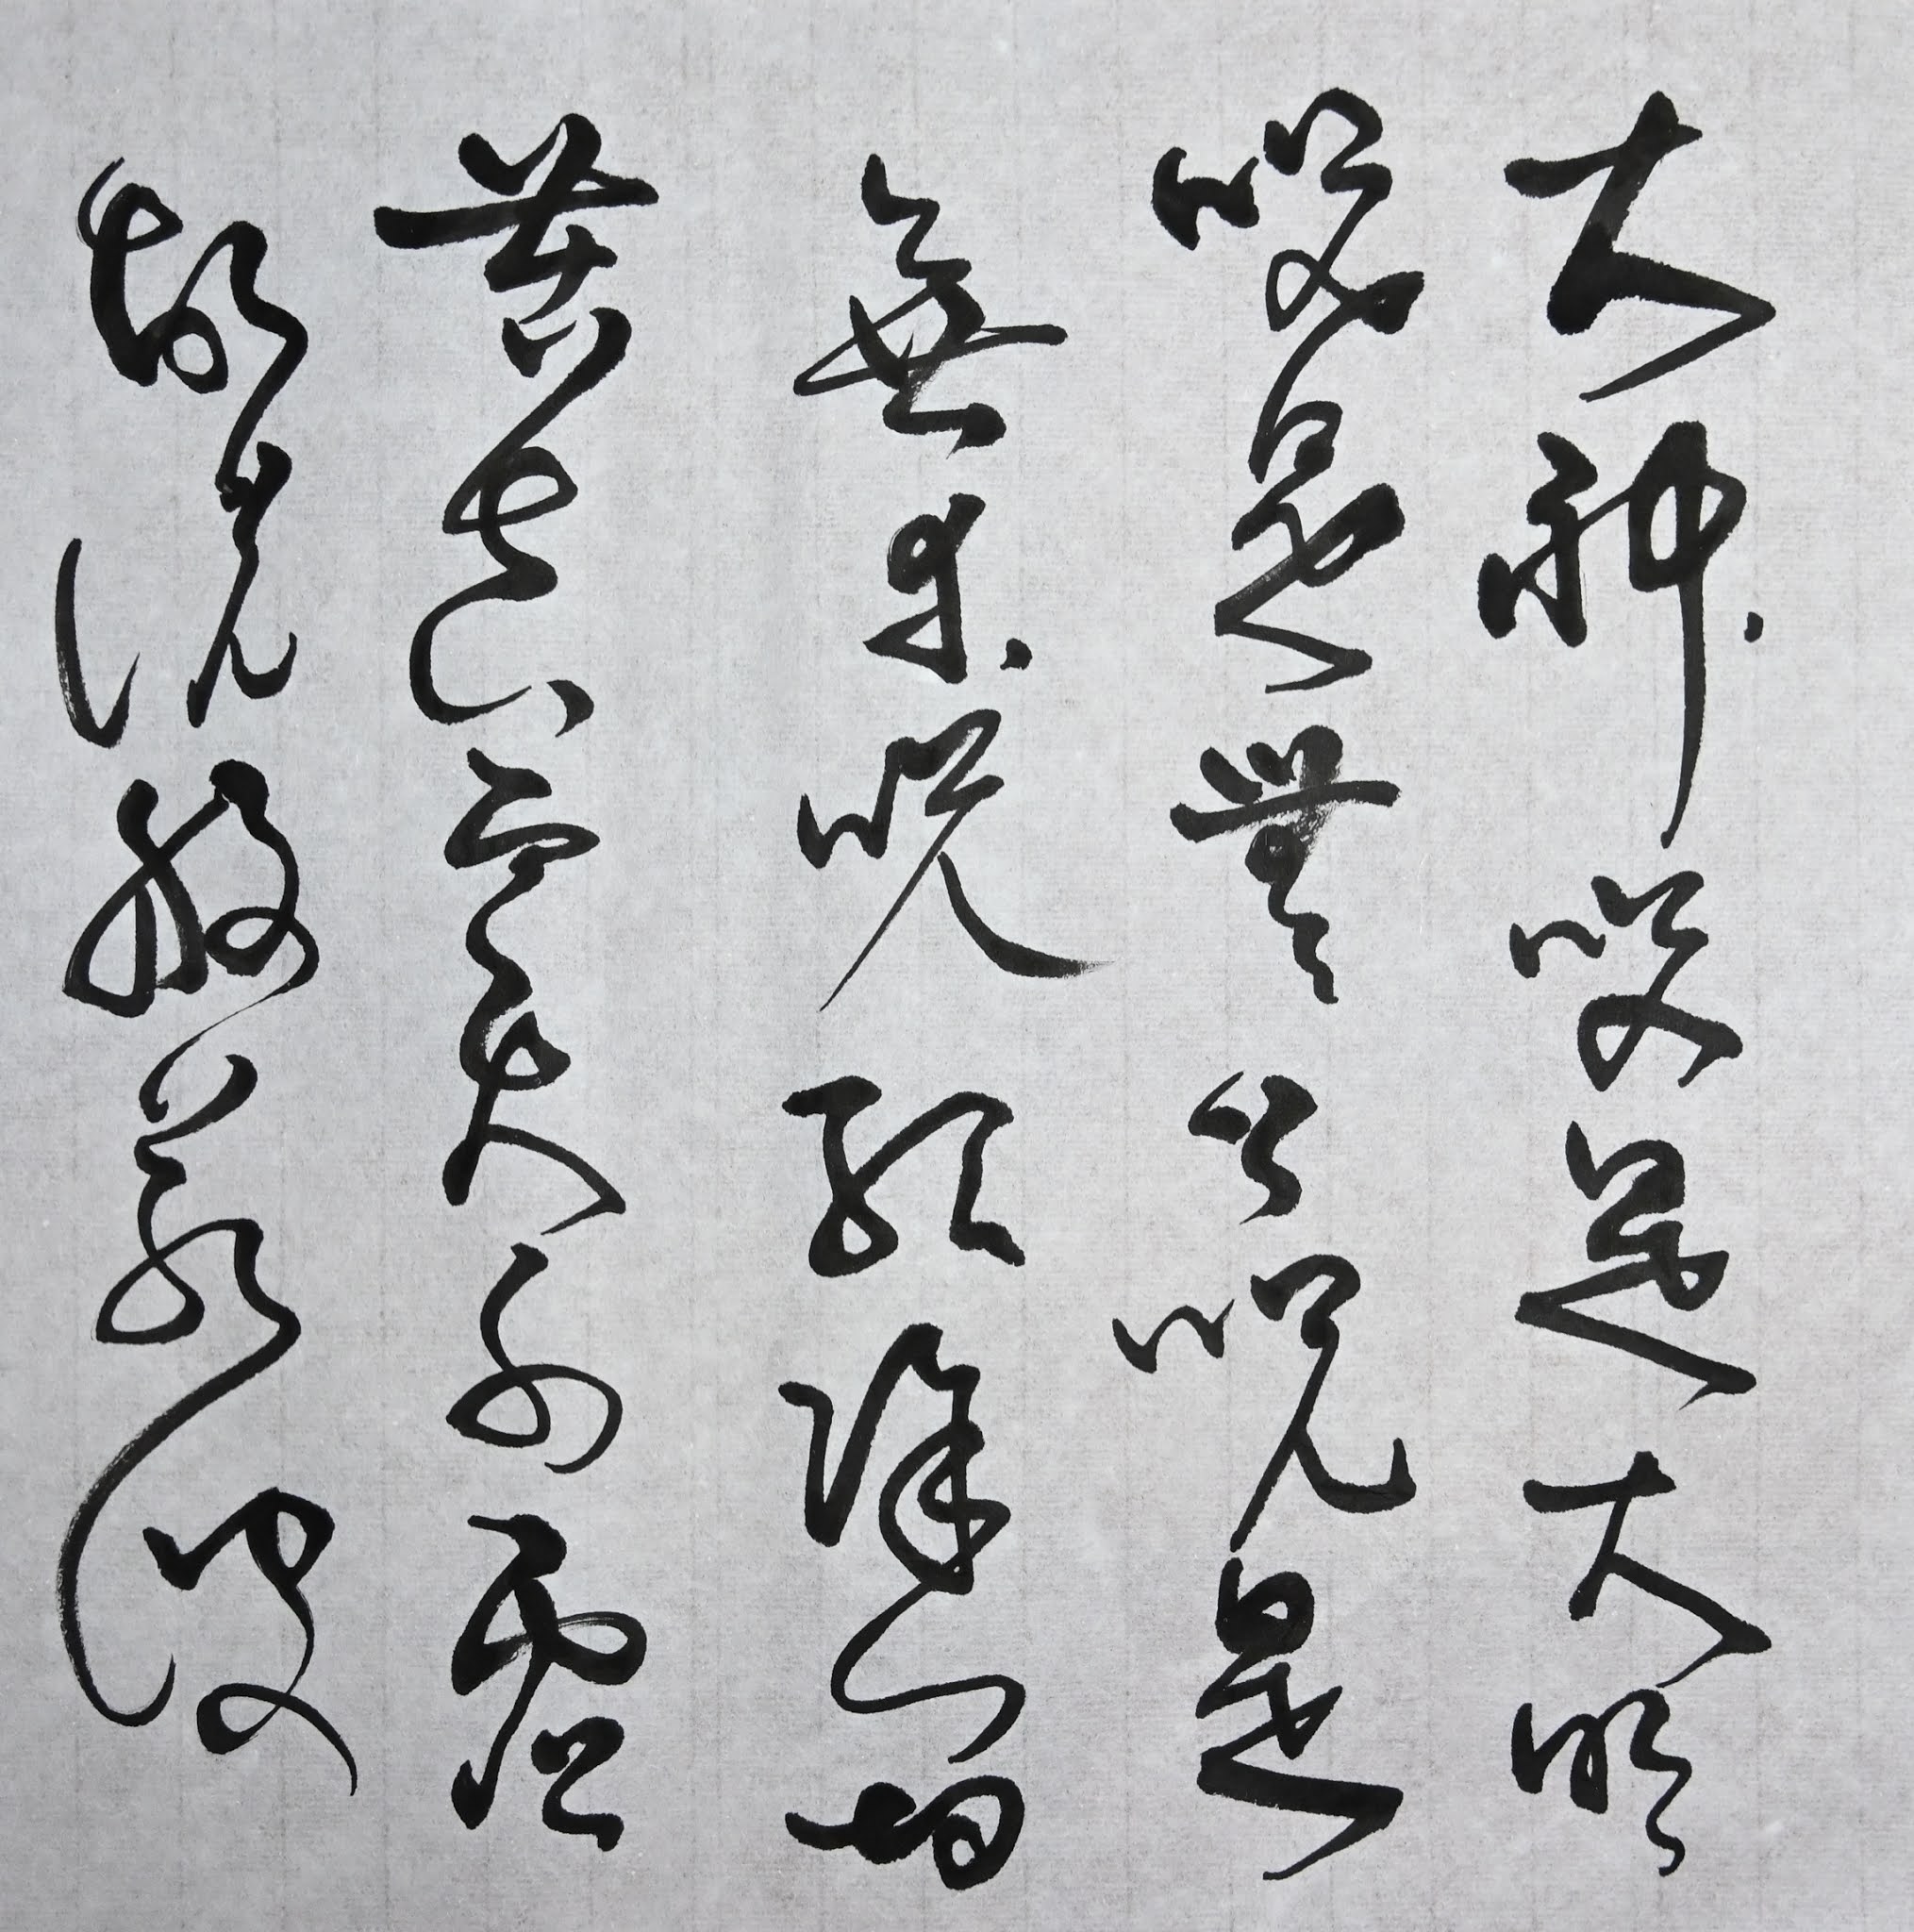 大神咒是大明
咒是無上咒是
無等等咒能除一切
苦真實不虛
故說般若波